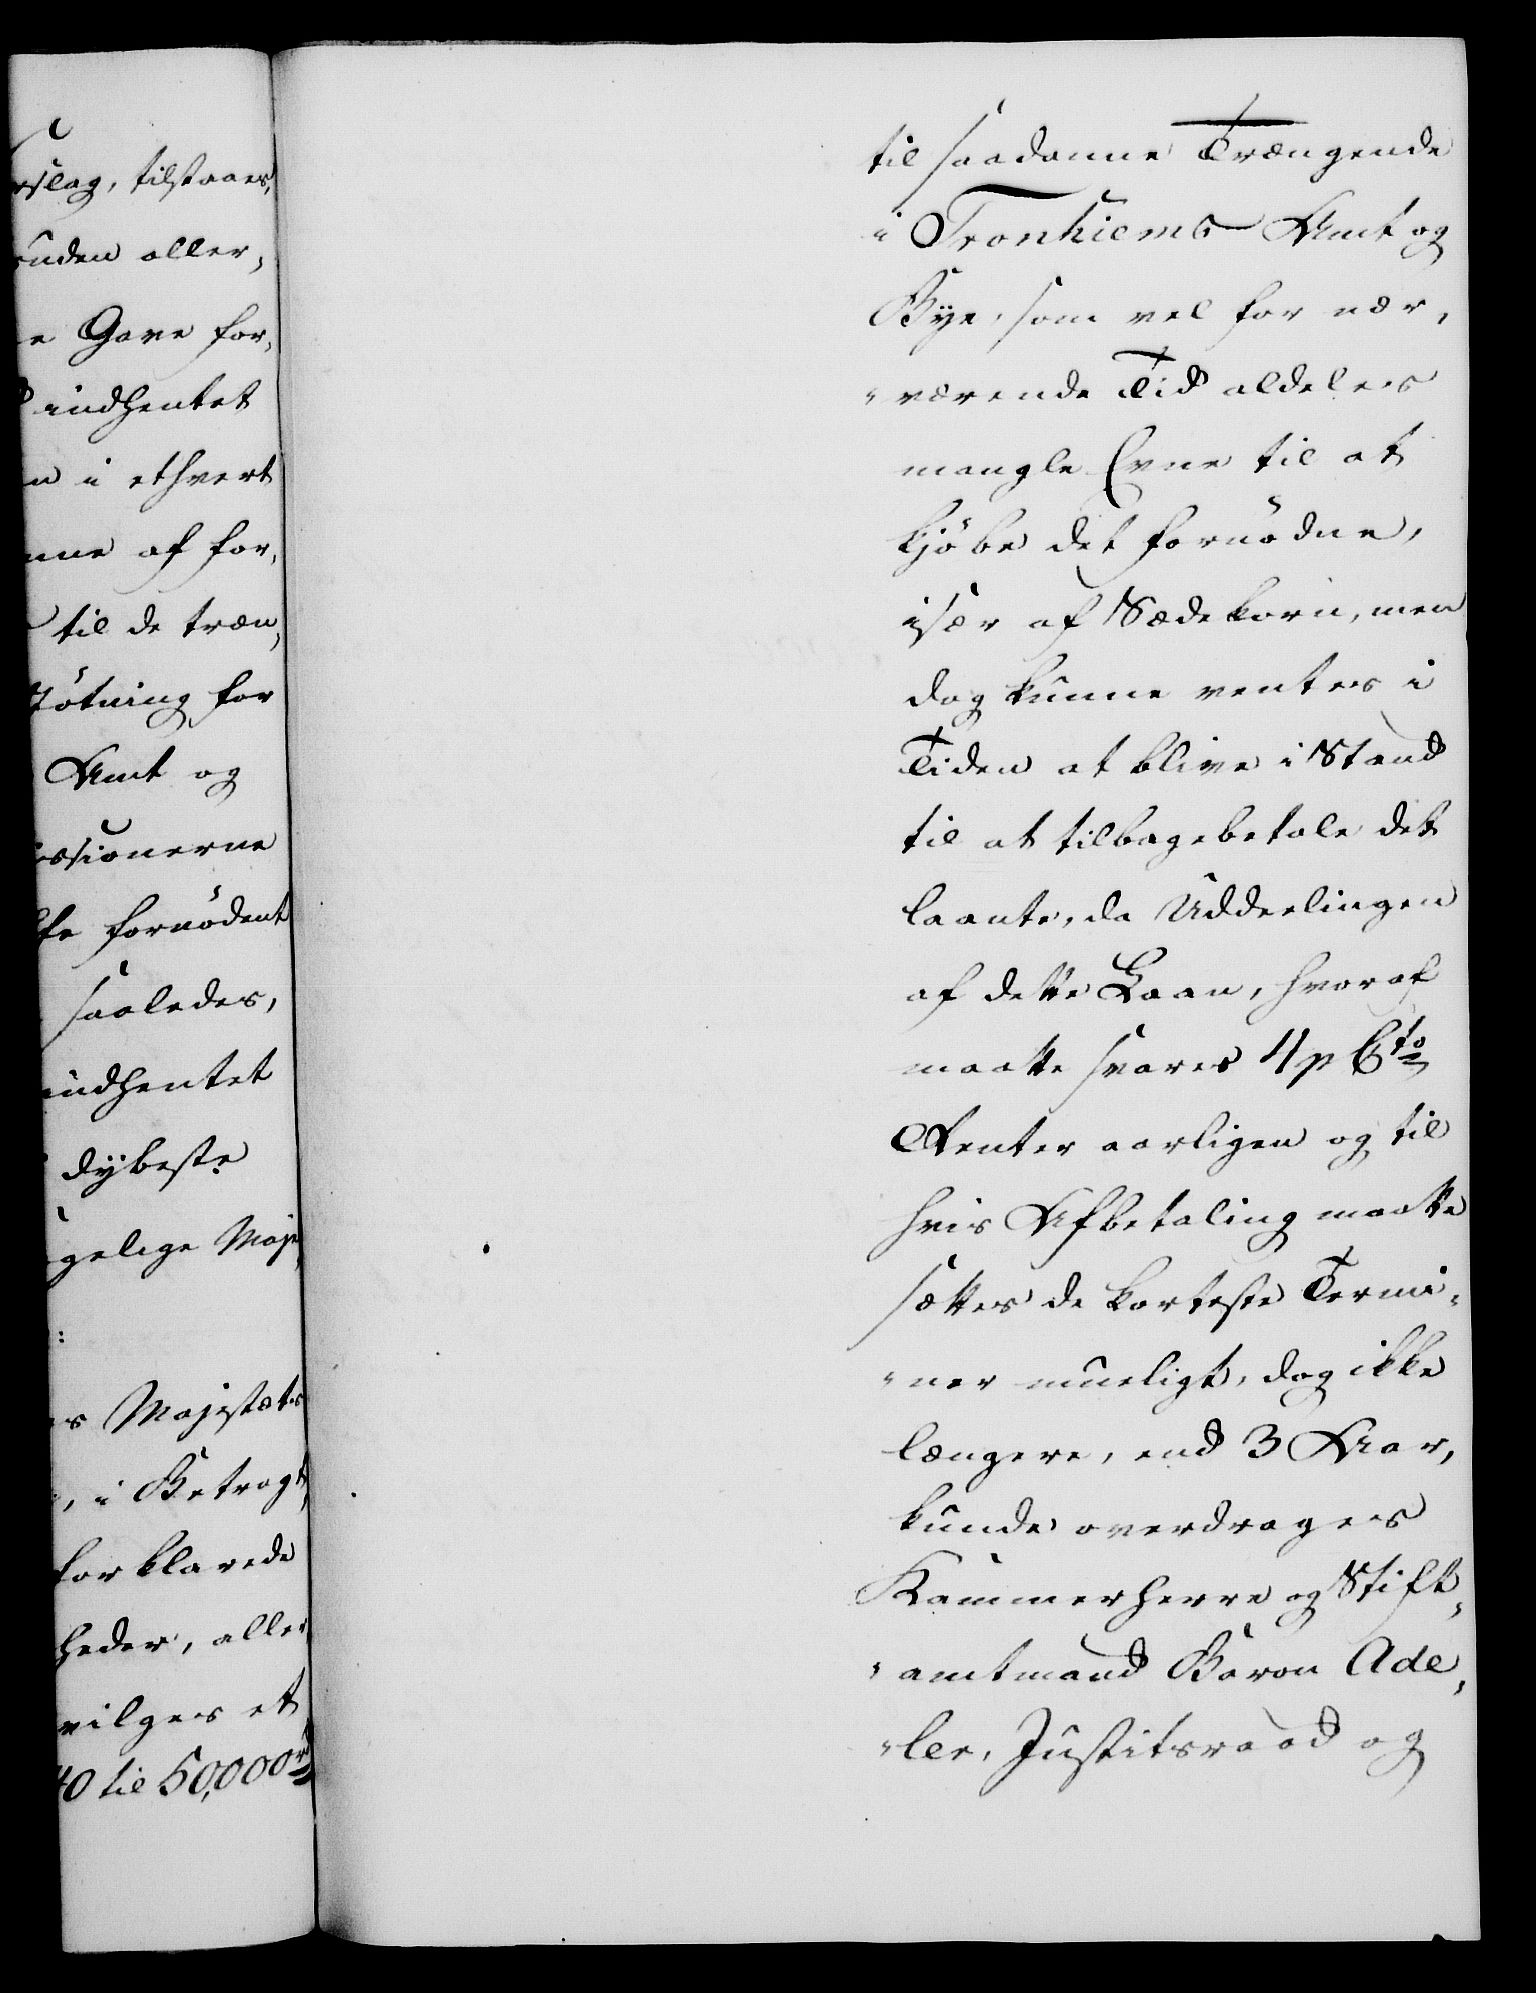 rslag, tilstaaes,
uden aller,
e Gave for,
indhentet
n i ethvert
nne af for,
til de træn,
støtning for
Amt og
issionerne
fornødent
saaledes,
indhentet
dybeste
gelige Maje
:
s Majestæts
, i Betragt,
forklarede
heder, aller
vilges et
40 til 50,000 rd
til saadanne Trængende
i Tronhiems Amt og
Bye, som vel for nær,
"værende Tid aldeles
mangle Evne til at
kjöbe det fornödne,
især af Sædekorn, men
dog kunne ventes i
Tiden at blive i Stand
til at tilbagebetale det
laante, da Uddeelingen
af dette Laan, hvoraf
maatte svares 4 p Cto
Renter aarligen og til
hvis Afbetaling maatte
sættes de korteste Termi,
"ner mueligt, dog ikke
længere, end 3 Aar,
kunde overdrages
Kammerherre og Stift,
"amtmand Baron Ade,
"ler, Justitsraad og